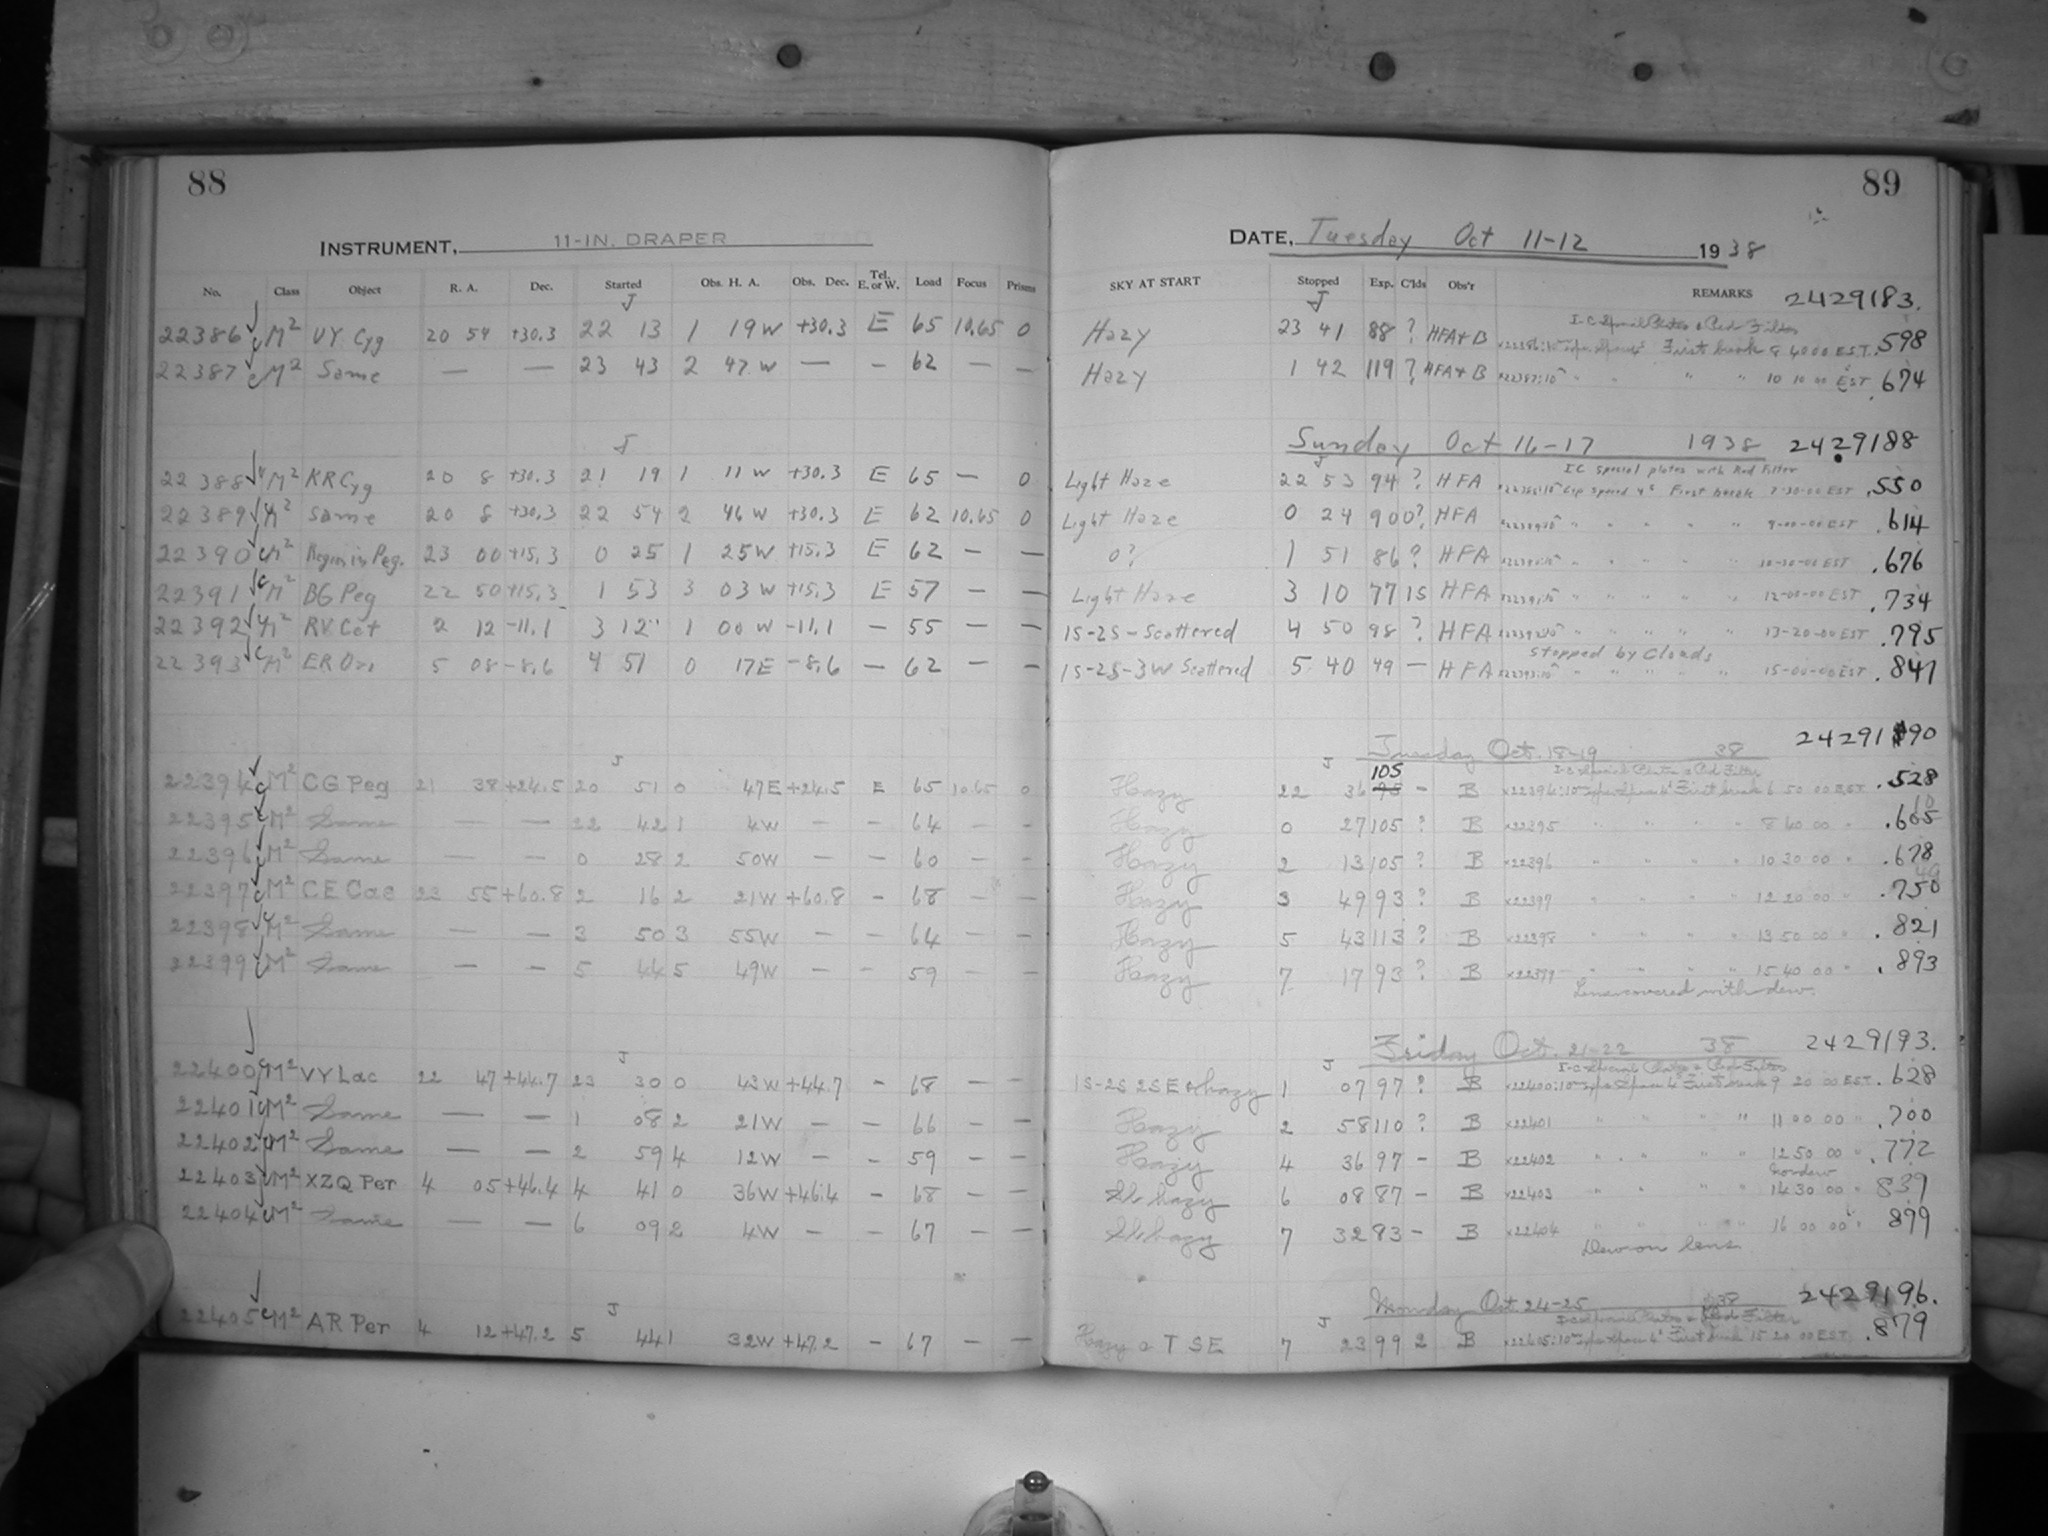 88
INSTRUMENT, 11-IN. DRAPER
No. Class Object R. A. Dec. Started Obs. H. A. Obs. Dec. Tel. E. or W. Load Focus Prisms
J
22386 M2 UY Cyg 20 54 +30.3 22 13 1 19W +30.3 E 65 10.65 0
22387 M2 Same — — 23 43 2 47W — - 62 — —
J
22388 M2 KR Cyg 20 8 +30.3 21 19 1 11W +30.3 E 65 — 0
22389 M2 Same 20 8 +30.3 22 54 2 46W +30.3 E 62 10.65 0
22390 M2 23 00 +15.3 0 25 1 25W +15.3 E 62 — —
22391 M2 BG Peg 22 50 +15.3 1 53 3 03W +15.3 E 57 — —
22392 M2 RV Cet 2 12 -11.1 3 12 1 00W -11.1 - 55 — —
22393 M2 ER Ori 5 08 -8.6 4 51 0 17E -8.6 — 62 — —
J
22394 M2 CG Peg 21 38 +24.5 20 51 0 47E +24.5 E 65 10.65 0
22395 M2 Same — — 22 42 1 4W — — 64 — —
22396 M2 Same — — 0 28 2 50W — — 60 — —
22397 M2 CE Cas 23 55 +60.8 2 16 2 21W +60.8 - 68 — —
22398 M2 Same — — 3 50 3 55W — — 64 — —
22399 M2 Same — — 5 44 5 49W — — 59 — —
J
22400 M2 VY Lac 22 47 +44.7 23 30 0 43W +44.7 - 68 — —
22401 M2 Same — — 1 08 2 21W — — 66 — —
22402 M2 Same — — 2 59 4 12W — — 59 — —
22403 M2 XZQ Per 4 05 +46.4 4 41 0 36W +46.4 - 68 — —
22404 M2 Same — — 6 09 2 4W — — 67 — —
J
22405 M2 AR Per 4 12 +47.2 5 44 1 32W +47.2 — 67 — —
89
DATE, Tuesday Oct 11-12 1938
SKY AT START Stopped Exp. C'lds Obs'r REMARKS 2429183.
J I-C Special Plates & Red Filter
Hazy 23 41 88 ? HFA+B First break 8 40 00 EST .598
Hazy 1 42 119 ? HFA+B " " 10 10 00 EST .674
Sunday Oct 16-17 1938 2429188
J IC Special plates with Red Filter
Light Haze 22 53 94 ? HFA First break 7-30-00 EST .550
Light Haze 0 24 90 0? HFA " " " " 9-00-00 EST .614
0? 1 51 86 ? HFA " " " " 10-30-00 EST .676
Light Haze 3 10 77 1S HFA " " " " 12-00-00 EST .734
1S-2S-Scattered 4 50 98 ? HFA " " " " 13-20-00 EST .795
Stopped by Clouds
1S-2S-3W Scattered 5 40 49 — HFA " " " " 15-00-00 EST .841
Tuesday Oct. 18-19 38 2429190
J 105 I-C Special Plates & Red Filter
Hazy 22 36 98 - B First break 6 50 00 EST .528
Hazy 0 27 105 ? B x22395 " " " " 8 40 00 "
Hazy 2 13 105 ? B x22396 " " " " 10 30 00 " .678
Hazy 3 49 93 ? B x22397 " " " " 12 20 00 " .750
Hazy 5 43 113 ? B x22398 " " " " 13 50 00 " .821
Hazy 7 17 93 ? B x22399 " " " " 15 40 00 " .893
Lens covered with dew.
Friday Oct. 21-22 38 2429193.
J I-C Special Plates & Red Filter
1S-2S 2SE & hazy 1 07 97 ? B First break 9 20 00 EST .628
Hazy 2 58 110 ? B x22401 " " " " 11 00 00 " .700
Hazy 4 36 97 - B x22402 " " " " 12 50 00 " .772
Sl. hazy 6 08 87 - B x22403 " " " " 14 30 00 " 839
Sl. hazy 7 32 83 - B x22404 " " " " 16 00 00 " 899
Dew on lens
Monday Oct 24-25 38 2429196.
J I-C Special Plates & Red Filter
7 23 99 2 B First break 15 20 00 EST .879